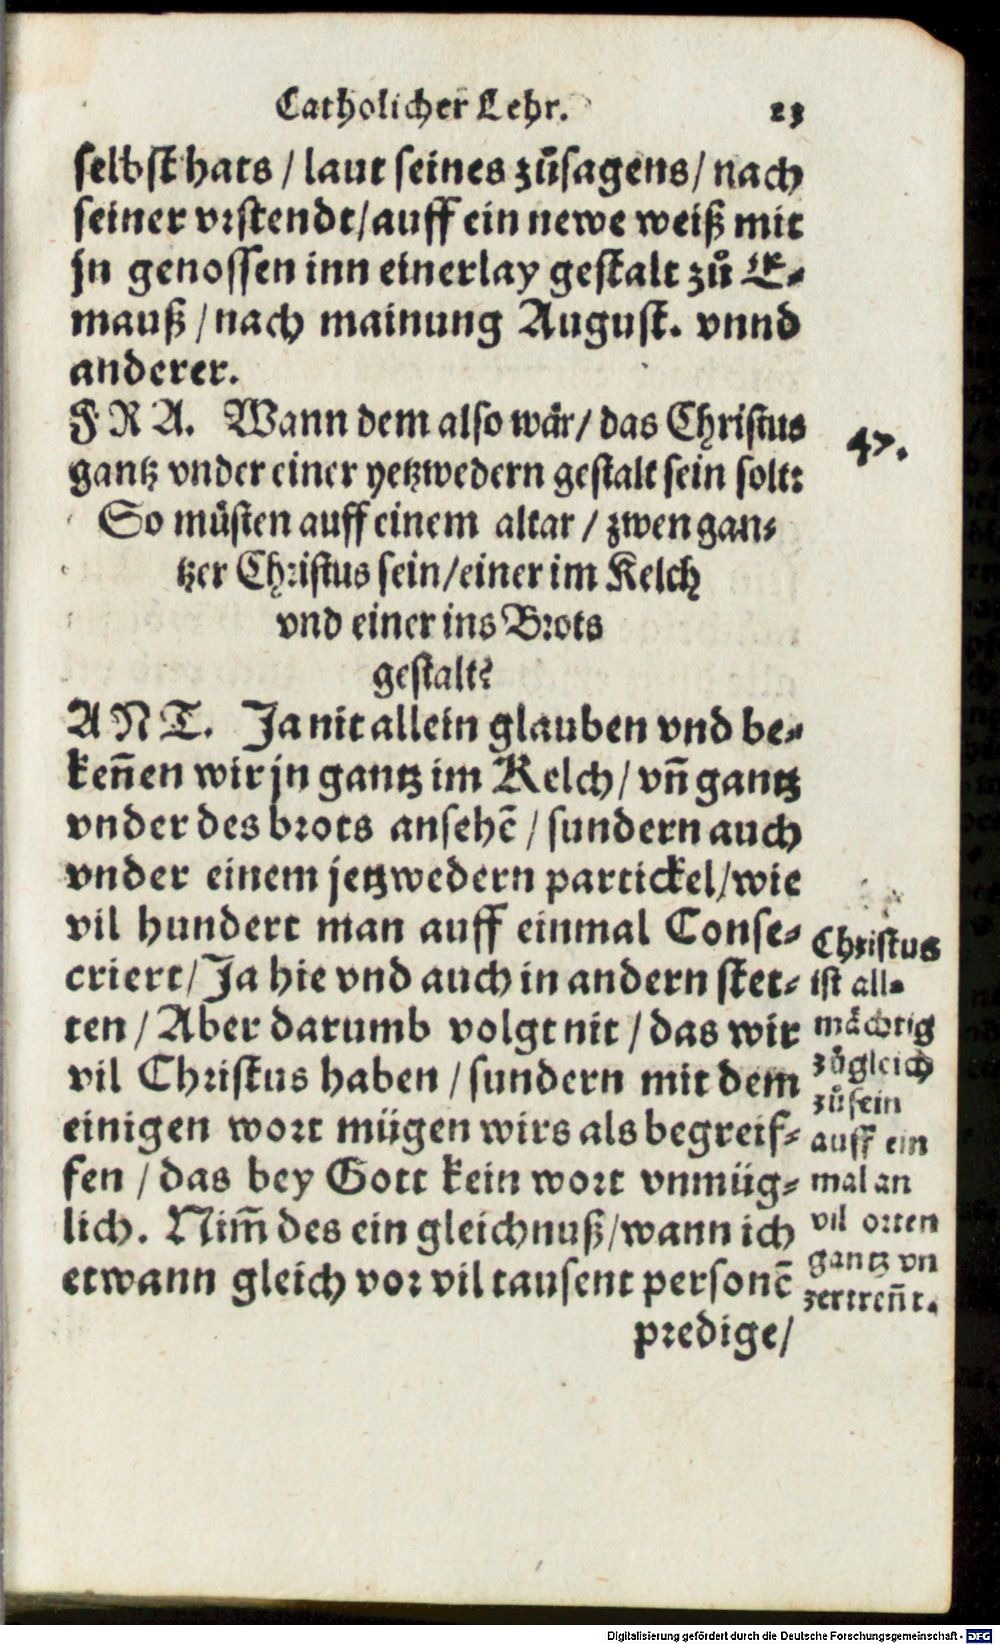 Catholicher Lehr. 23
selbst hats / laut seines zůsagens / nach
seiner vrstendt / auff ein newe weiß mit
jn genossen inn einerlay gestalt zů E-
mauß / nach mainung August. vnnd
anderer.
FRA. Wann dem also wär / das Christus
gantz vnder einer yetzwedern gestalt sein solt:
So müsten auff einem altar / zwen gan-
tzer Christus sein / einer im Kelch
vnd einer ins Brots
gestalt?
47.
ANT. Ja nit allein glauben vnd be-
keñen wir jn gantz im Kelch / vñ gantz
vnder des brots ansehē / sundern auch
vnder einem jetzwedern partickel / wie
vil hundert man auff einmal Conse-
criert / Ja hie vnd auch in andern stet-
ten / Aber darumb volgt nit / das wir
vil Christus haben / sundern mit dem
einigen wort mügen wirs als begreif-
fen / das bey Gott kein wort vnmüg-
lich. Nim̃ des ein gleichnuß / wann ich
etwann gleich vor vil tausent personē
predige /
Christus
ist all-
mächtig
zůgleich
zůsein
auff ein
mal an
vil orten
gantz vn
zertreñt.
Digitalisierung gefördert durch die Deutsche Forschungsgemeinschaft - DFG